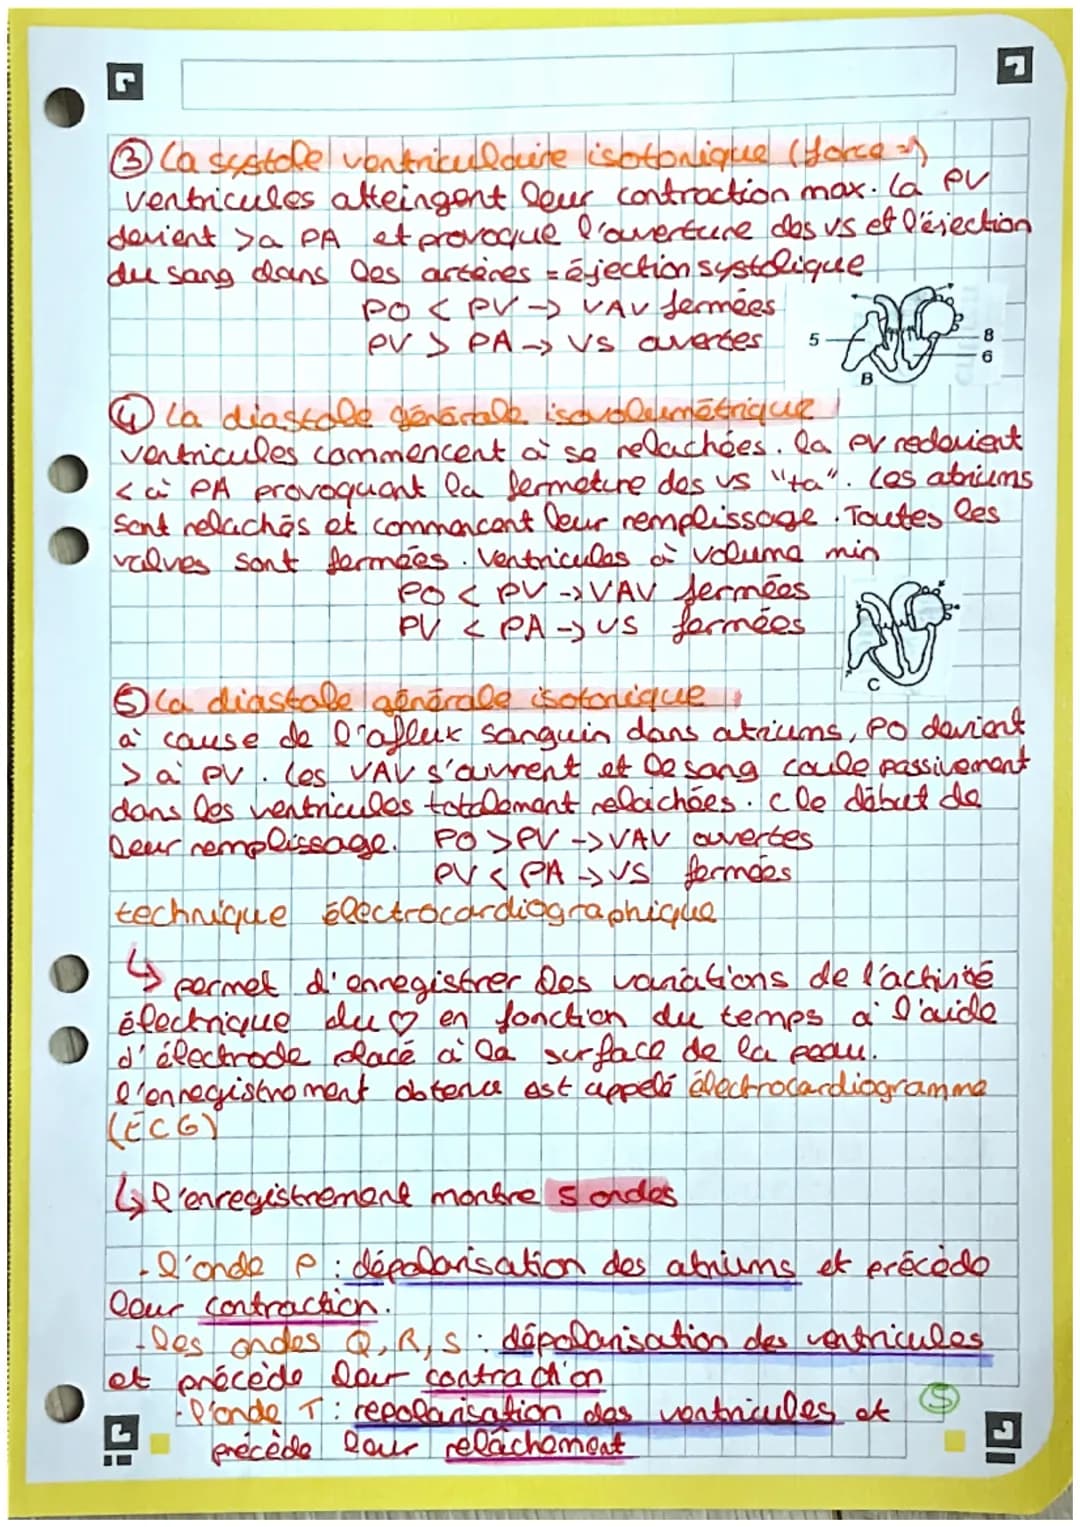 ③ La systole ventriculaire isotonique (force =)
ventricules atteingent leur contraction max. La PV
devient > a PA et provoque l'ouverture des VS et l'éjection
du sang dans les artères = éjection systolique
PO < PV → VAV fermées
PV > PA → VS ouvertes
5
8
6
B
④ La diastole générale isovolumétrique
ventricules commencent à se relachées. la PV redevient
< à PA provoquant la fermeture des VS "ta". Les atriums
sont relachés et commencent leur remplissage. Toutes les
valves sont fermées. Ventricules à volume min
PO < PV → VAV fermées
PV < PA → VS fermées
C
⑤ La diastole générale isotonique
à cause de l'afflux sanguin dans atriums, PO devient
> à PV. Les VAV s'ouvrent et le sang coule passivement
dans les ventricules totalement relachées. c le début de
leur remplissage. PO > PV → VAV ouvertes
PV < PA → VS fermées
technique électrocardiographique
↳ permet d'enregistrer les variations de l'activité
électrique du ♡ en fonction du temps à l'aide
d'électrode placé à la surface de la peau.
l'enregistrement obtenu est appelé électrocardiogramme
(ECG)
↳ l'enregistrement montre 5 ondes
- l'onde P : dépolarisation des atriums et précède
leur contraction.
- les ondes Q, R, S : dépolarisation des ventricules
et précède leur contraction
- l'onde T : repolarisation des ventricules et
précède leur relâchement
⑤